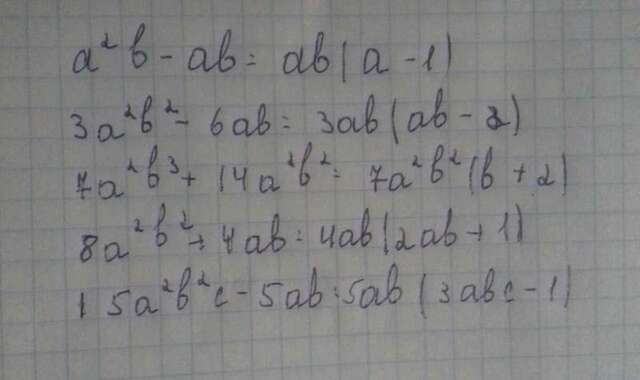 a²b - ab = ab(a - 1)
3a²b² - 6ab = 3ab(ab - 2)
7a²b³ + 14a²b² = 7a²b²(b + 2)
8a²b² + 4ab = 4ab(2ab + 1)
15a²b²c - 5ab = 5ab(3abc - 1)